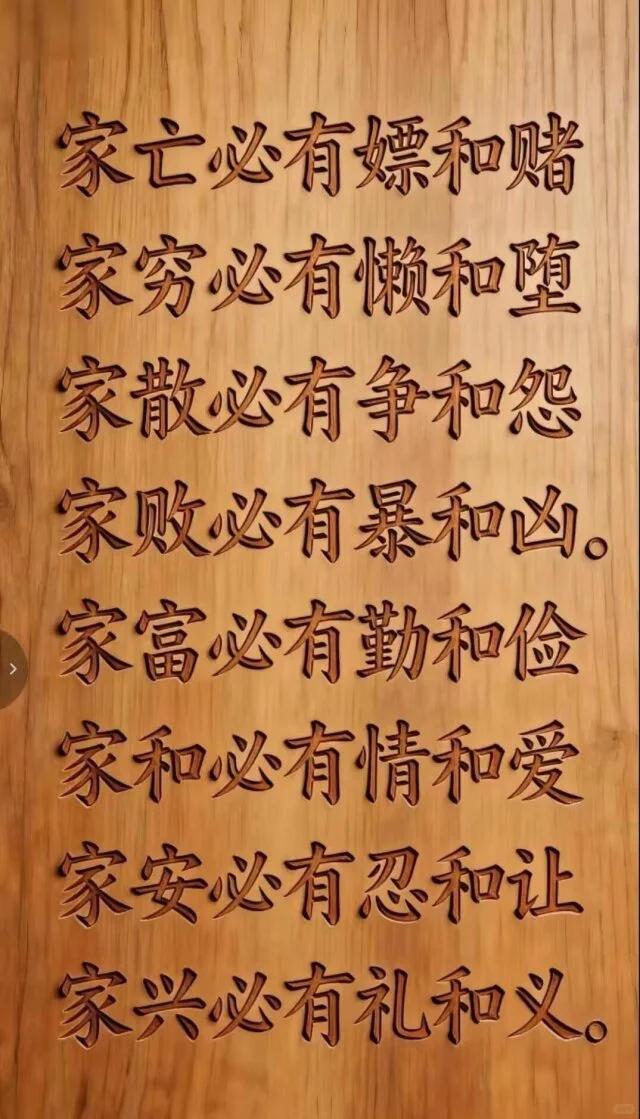 家亡必有嫖和赌
家穷必有懒和堕
家散必有争和怨
家败必有暴和凶。
家富必有勤和俭
家和必有情和爱
家安必有忍和让
家兴必有礼和义。